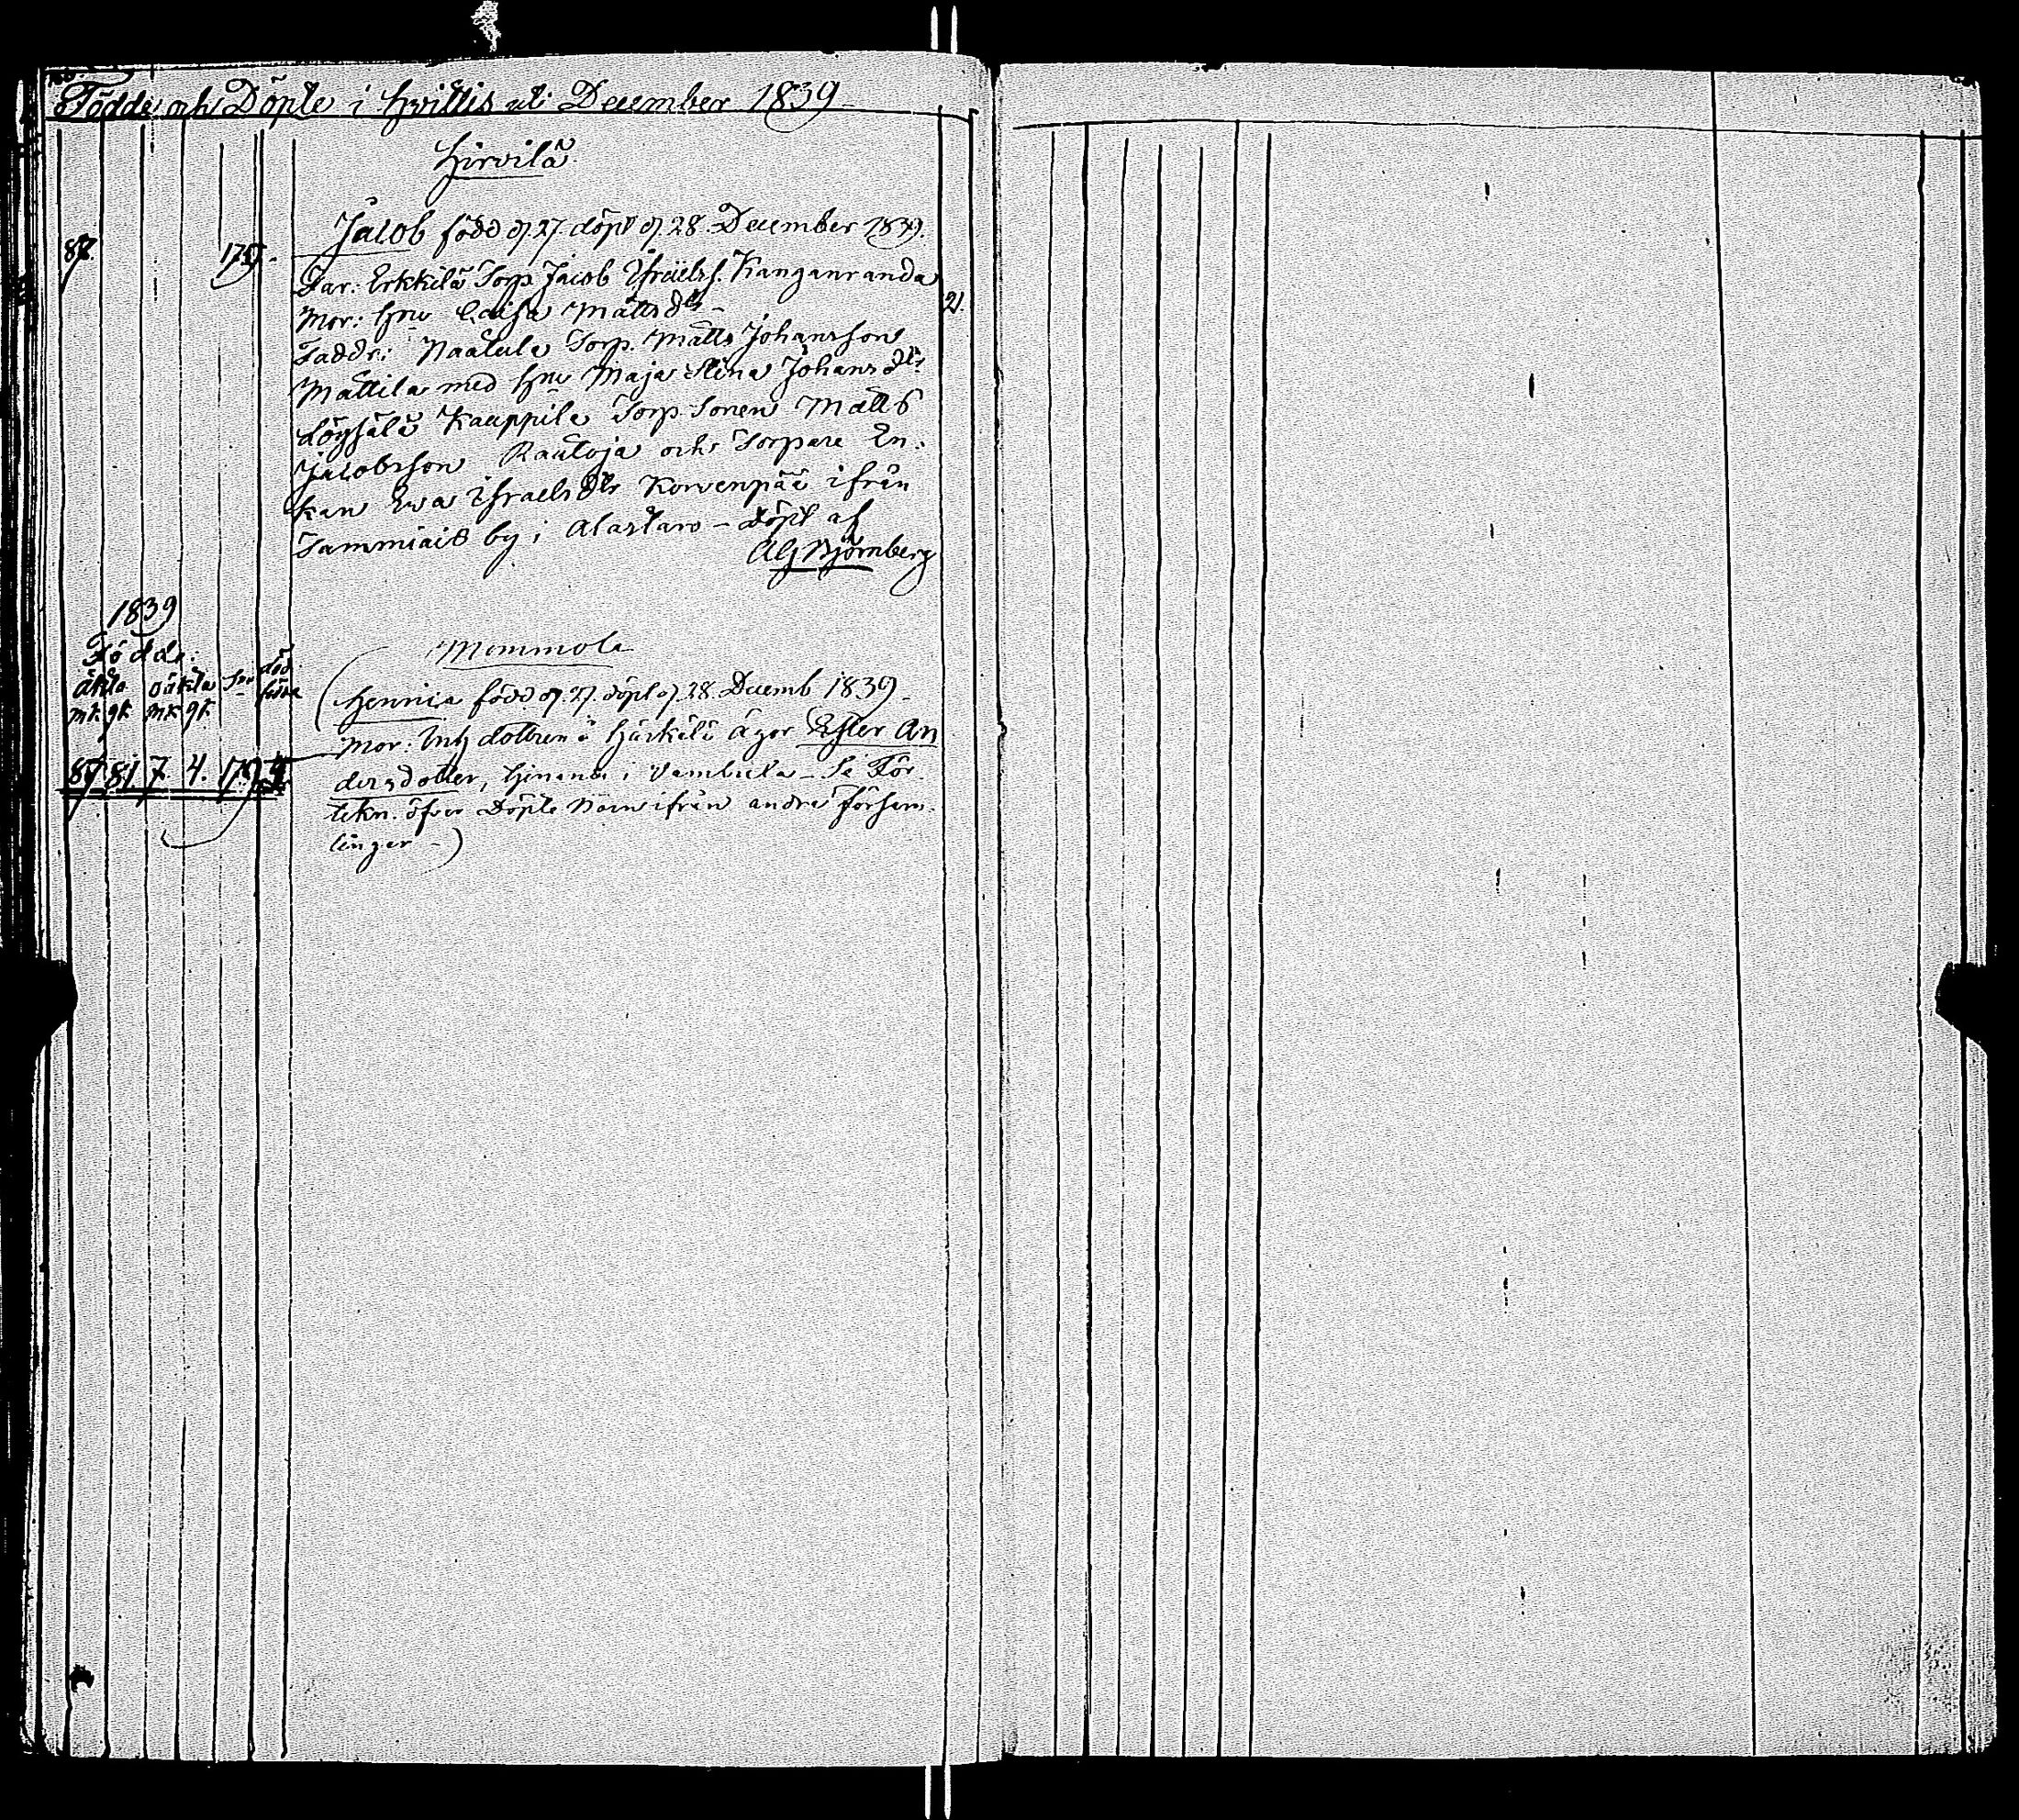 Födde och Döpte i Hvittis uti December 1839
Hirvilä
Jacob född d. 27. döpt d. 28. December 1839.
87. 179.
Far: Erkkilä Torp. Jacob Israels s. Kanganranda
Mor: Hu Caisa Mattsdtr 21.
Faddr: Naatula Torp. Matts Johansson
Mattila med Hu Maja Stina Johansdtr
Löysälä Kauppila Torp Sonen Matts
Jacobsson Rautoja och Torpare En-
kan Eva Israelsdtr Korvenpää ifrån
Sammiais by i Alastaro – döpt af
AG Björnberg
1839
Födde:
äkta oäkta Su död
mk gk mk gk födde
87 81. 7. 4. 179
Mommola
(Hennica född d. 27. döpt d. 28. Decemb 1839
Mor: Inh dottren å Härkälä ägor Ester An
dersdotter, hemma i – Se För
tekn. öfver Döpte Barn ifrån andra försam
lingar –)